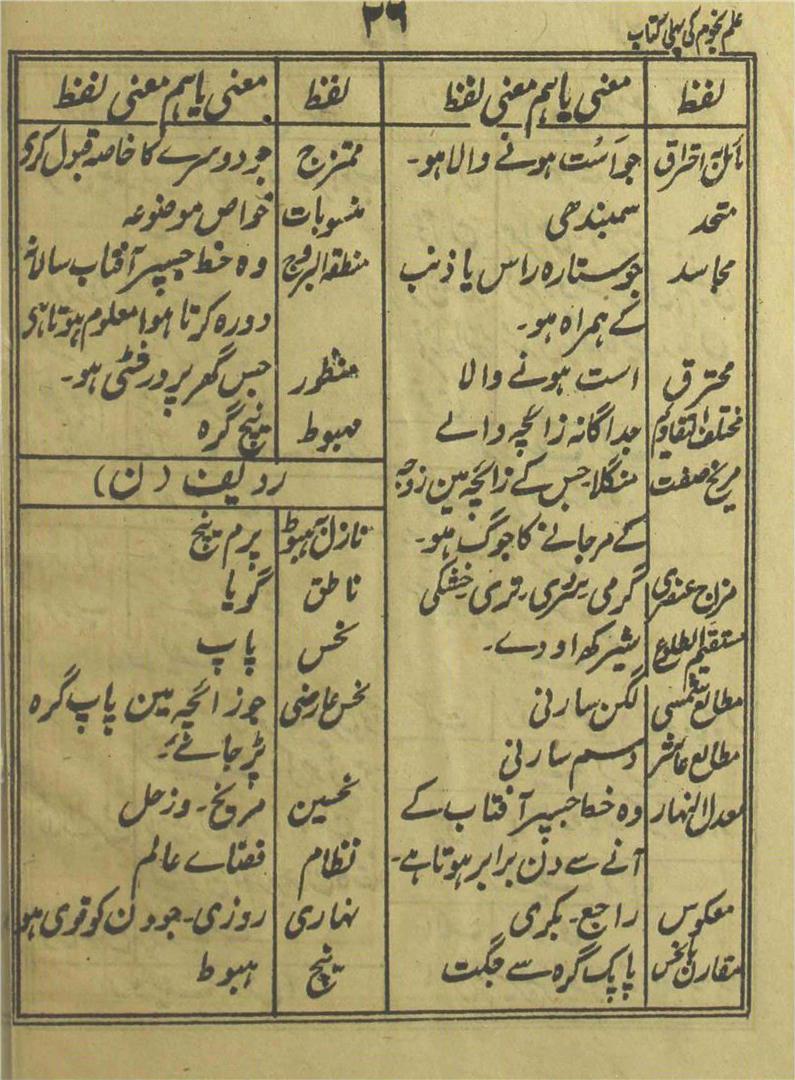 علم نجوم کی پہلی کتاب
۲۹
لفظ معنی یا ہم معنی لفظ
مائل بہ احتراق جو اَست ہونے والا ہو۔
متحد سمبندھی
مجاسد جو ستارہ راس یا ذنب
کے ہمراہ ہو۔
محترق است ہونے والا
مختلف التقاویم جداگانہ زائچہ والے
مریخ صفت منگلا جس کے زائچہ مین زوجہ
کے مر جانے کا جوگ ہو۔
مزاج عنصری گرمی۔ سردی۔ تری۔ خشکی
مستقیم الطلوع شیرکھ اودے۔
مطالع شمسی لگن سارنی
مطالع عاشر دسم سارنی
معدل النہار وہ خط جسپر آفتاب کے
آنے سے دن برابر ہوتا ہے۔
معکوس راجع۔ بکری
مقارن بانحس پاپ گرہ سے جگت
لفظ معنی یا ہم معنی لفظ
ممتزج جو دوسرے کا خاصہ قبول کری
منسوبات خواص موضوعہ
منطقہ البروج وہ خط جسپر آفتاب سالانہ
دورہ کرتا ہوا معلوم ہوتا ہی
منظور جس گھر پر درشٹی ہو۔
مہبوط نیچ گرہ
ردیف (ن)
نازل بہبوط پرم نیچ
ناطق گویا
نحس پاپ
نحس عارضی جو زائچہ مین پاپ گرہ
پڑ جائے۔
نحسین مریخ۔ و زحل
نظام فضاے عالم
نہاری روزی۔ جو دن کو قوی ہو
نیچ ہبوط